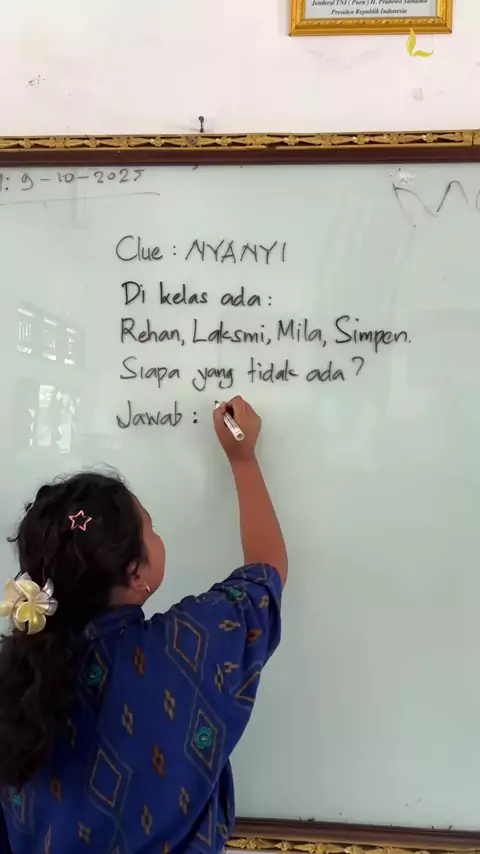 Jenderal TNI ( Purn ) H. Prabowo Subianto
Presiden Republik Indonesia
: 9-10-2025
Clue : NYANYI
Di kelas ada :
Rehan, Laksmi, Mila, Simpen.
Siapa yang tidak ada ?
Jawab :